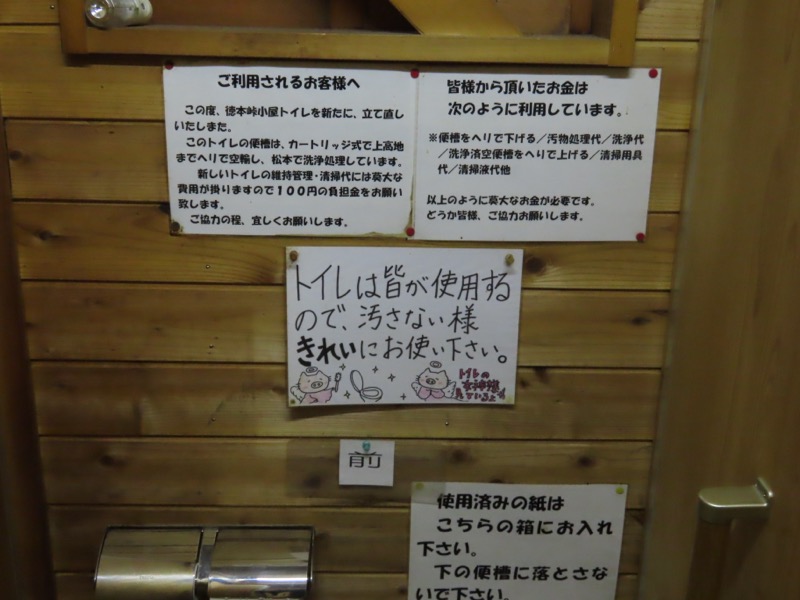 ご利用されるお客様へ
この度、徳本峠小屋トイレを新たに、立て直し
いたしました。
このトイレの便槽は、カートリッジ式で上高地
までヘリで空輸し、松本で洗浄処理しています。
新しいトイレの維持管理・清掃代には莫大な
費用が掛りますので１００円の負担金をお願い
致します。
ご協力の程、宜しくお願いします。
皆様から頂いたお金は
次のように利用しています。
※便槽をヘリで下げる／汚物処理代／洗浄代
／洗浄済空便槽をヘリで上げる／清掃用具
代／清掃液代他
以上のように莫大なお金が必要です。
どうか皆様、ご協力お願いします。
トイレは皆が使用する
ので、汚さない様
きれいにお使い下さい。
トイレの
女神様
見ているよ
前
使用済みの紙は
こちらの箱にお入れ
下さい。
下の便槽に落とさな
いで下さい。